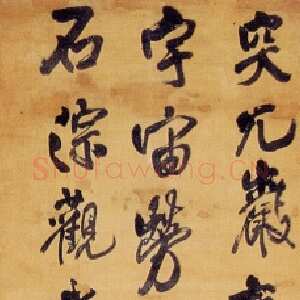 突兀巖
宇宙勞
石淙觀
Shufawang.Cn